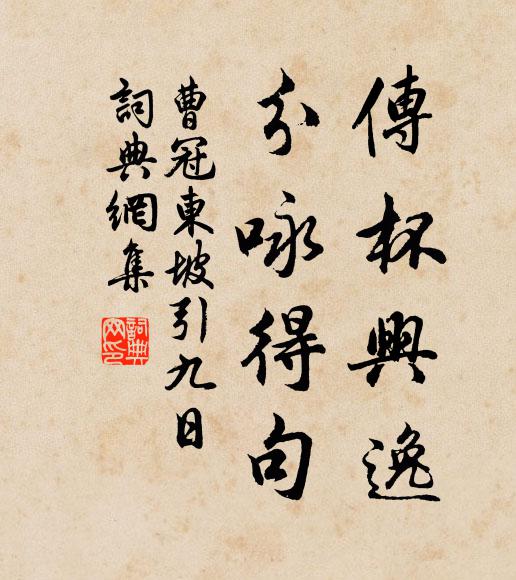 傳杯興逸
分咏得句
曹冠東坡引九日
詞典網集
詞典網印